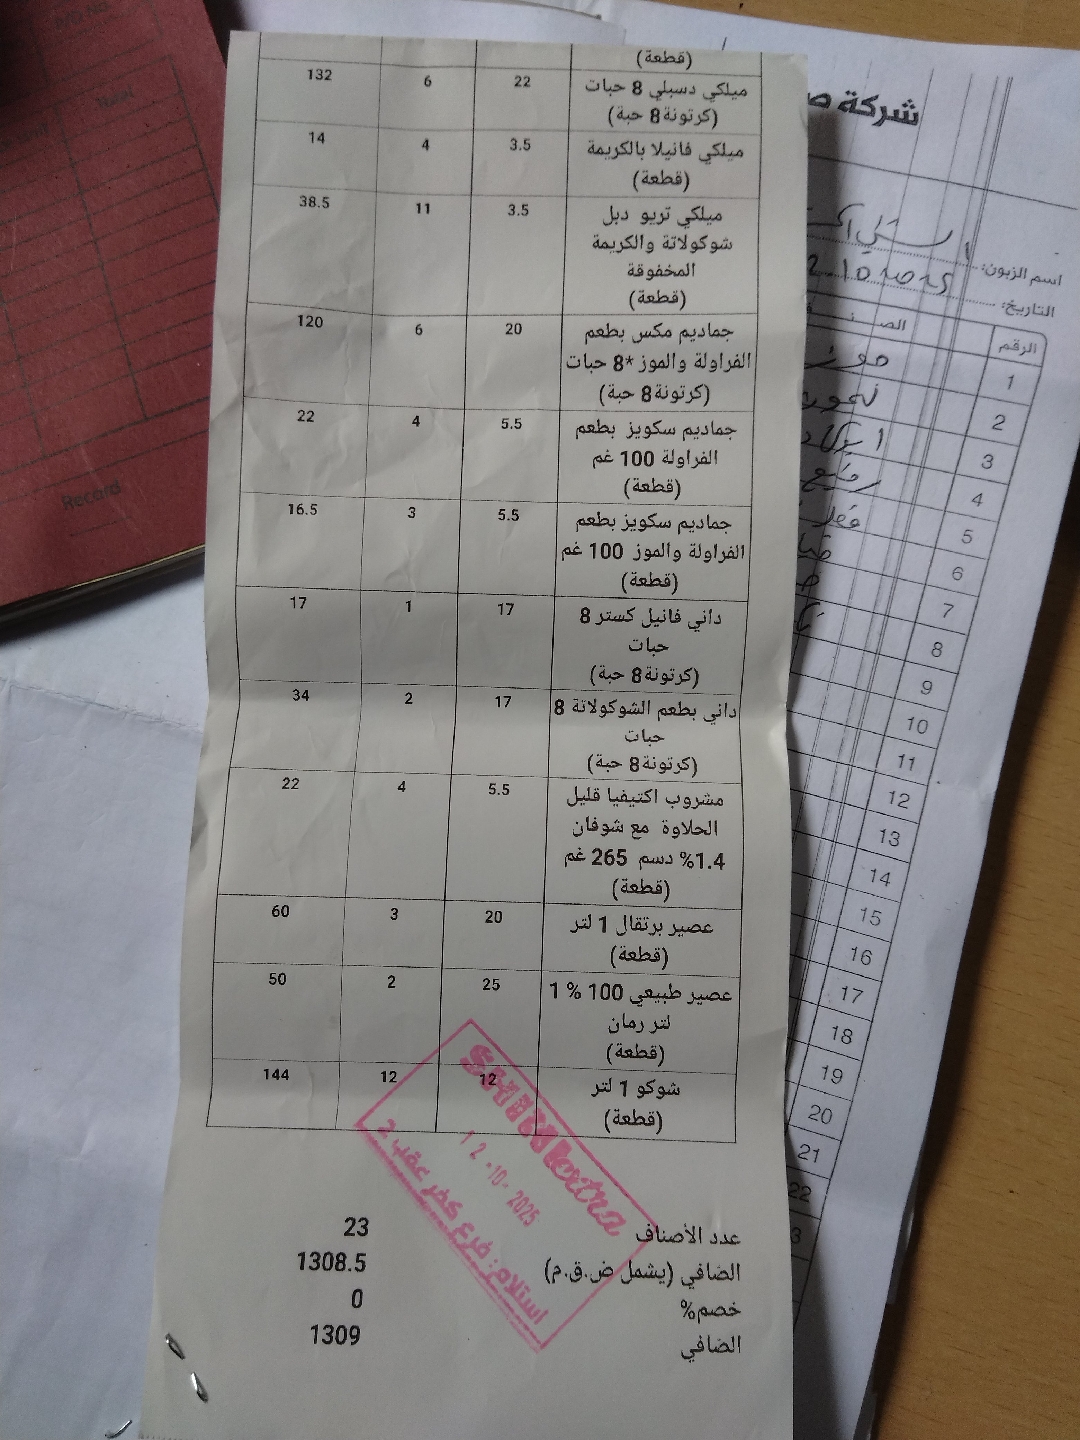 (قطعة)
ميلكي دسبلي 8 حبات 22 6 132
(كرتونة8 حبة)
ميلكي فانيلا بالكريمة 3.5 4 14
(قطعة)
ميلكي تريو دبل 3.5 11 38.5
شوكولاتة والكريمة
المخفوقة
(قطعة)
جماديم مكس بطعم 20 6 120
الفراولة والموز *8 حبات
(كرتونة8 حبة)
جماديم سكويز بطعم 5.5 4 22
الفراولة 100 غم
(قطعة)
جماديم سكويز بطعم 5.5 3 16.5
الفراولة والموز 100 غم
(قطعة)
داني فانيل كستر 8 17 1 17
حبات
(كرتونة8 حبة)
داني بطعم الشوكولاتة 8 17 2 34
حبات
(كرتونة8 حبة)
مشروب اكتيفيا قليل 5.5 4 22
الحلاوة مع شوفان
1.4% دسم 265 غم
(قطعة)
عصير برتقال 1 لتر 20 3 60
(قطعة)
عصير طبيعي 100 % 1 25 2 50
لتر رمان
(قطعة)
شوكو 1 لتر 12 12 144
(قطعة)
عدد الأصناف 23
الصافي (يشمل ض.ق.م) 1308.5
خصم% 0
الصافي 1309
extra
12 -10- 2025
استلام: فرع كفر عقب 2
شركة
اسم الزبون:
التاريخ:
الرقم الصنف
1
2
3
4
5
6
7
8
9
10
11
12
13
14
15
16
17
18
19
20
21
22
Total
Record